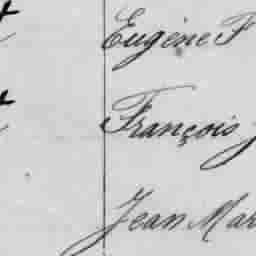 Eugène F
François J
Jean Mar